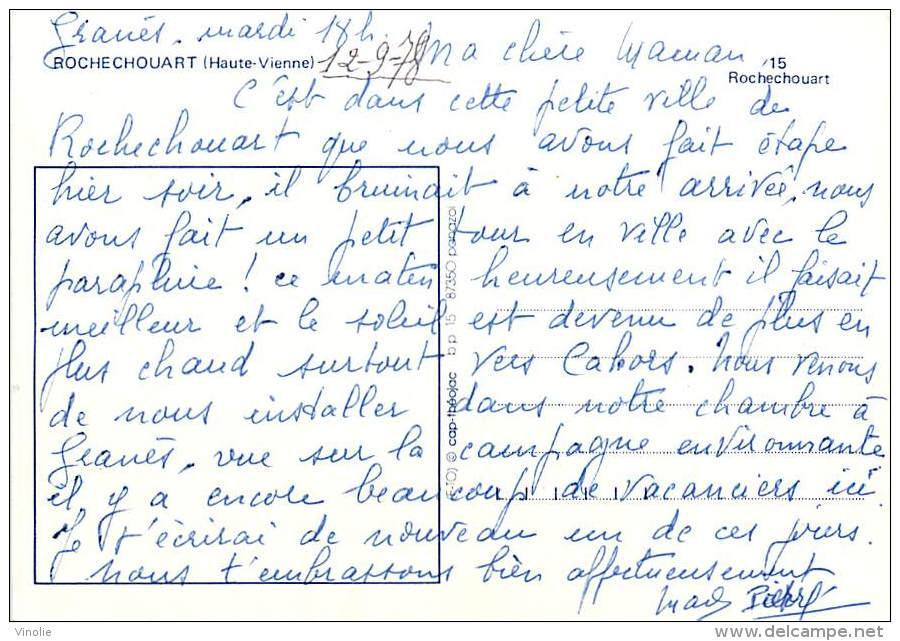 Granés. mardi 18h. Ma chère Maman,
12-9-78
ROCHECHOUART (Haute-Vienne)
15
Rochechouart
C'est dans cette petite ville de
Rochechouart que nous avons fait étape
hier soir, il bruinait à notre arrivée, nous
avons fait un petit tour en ville avec le
parapluie ! ce matin heureusement il faisait
meilleur et le soleil est devenu de plus en
plus chaud surtout vers Cahors. Nous venons
de nous installer dans notre chambre à
Granés, vue sur la campagne environnante
il y a encore beaucoup de vacanciers ici
Je t'écrirai de nouveau un de ces jours.
Nous t'embrassons bien affectueusement
Pierre
cap-théojac bp 15 87350 panazol
Vinolie
www.delcampe.net